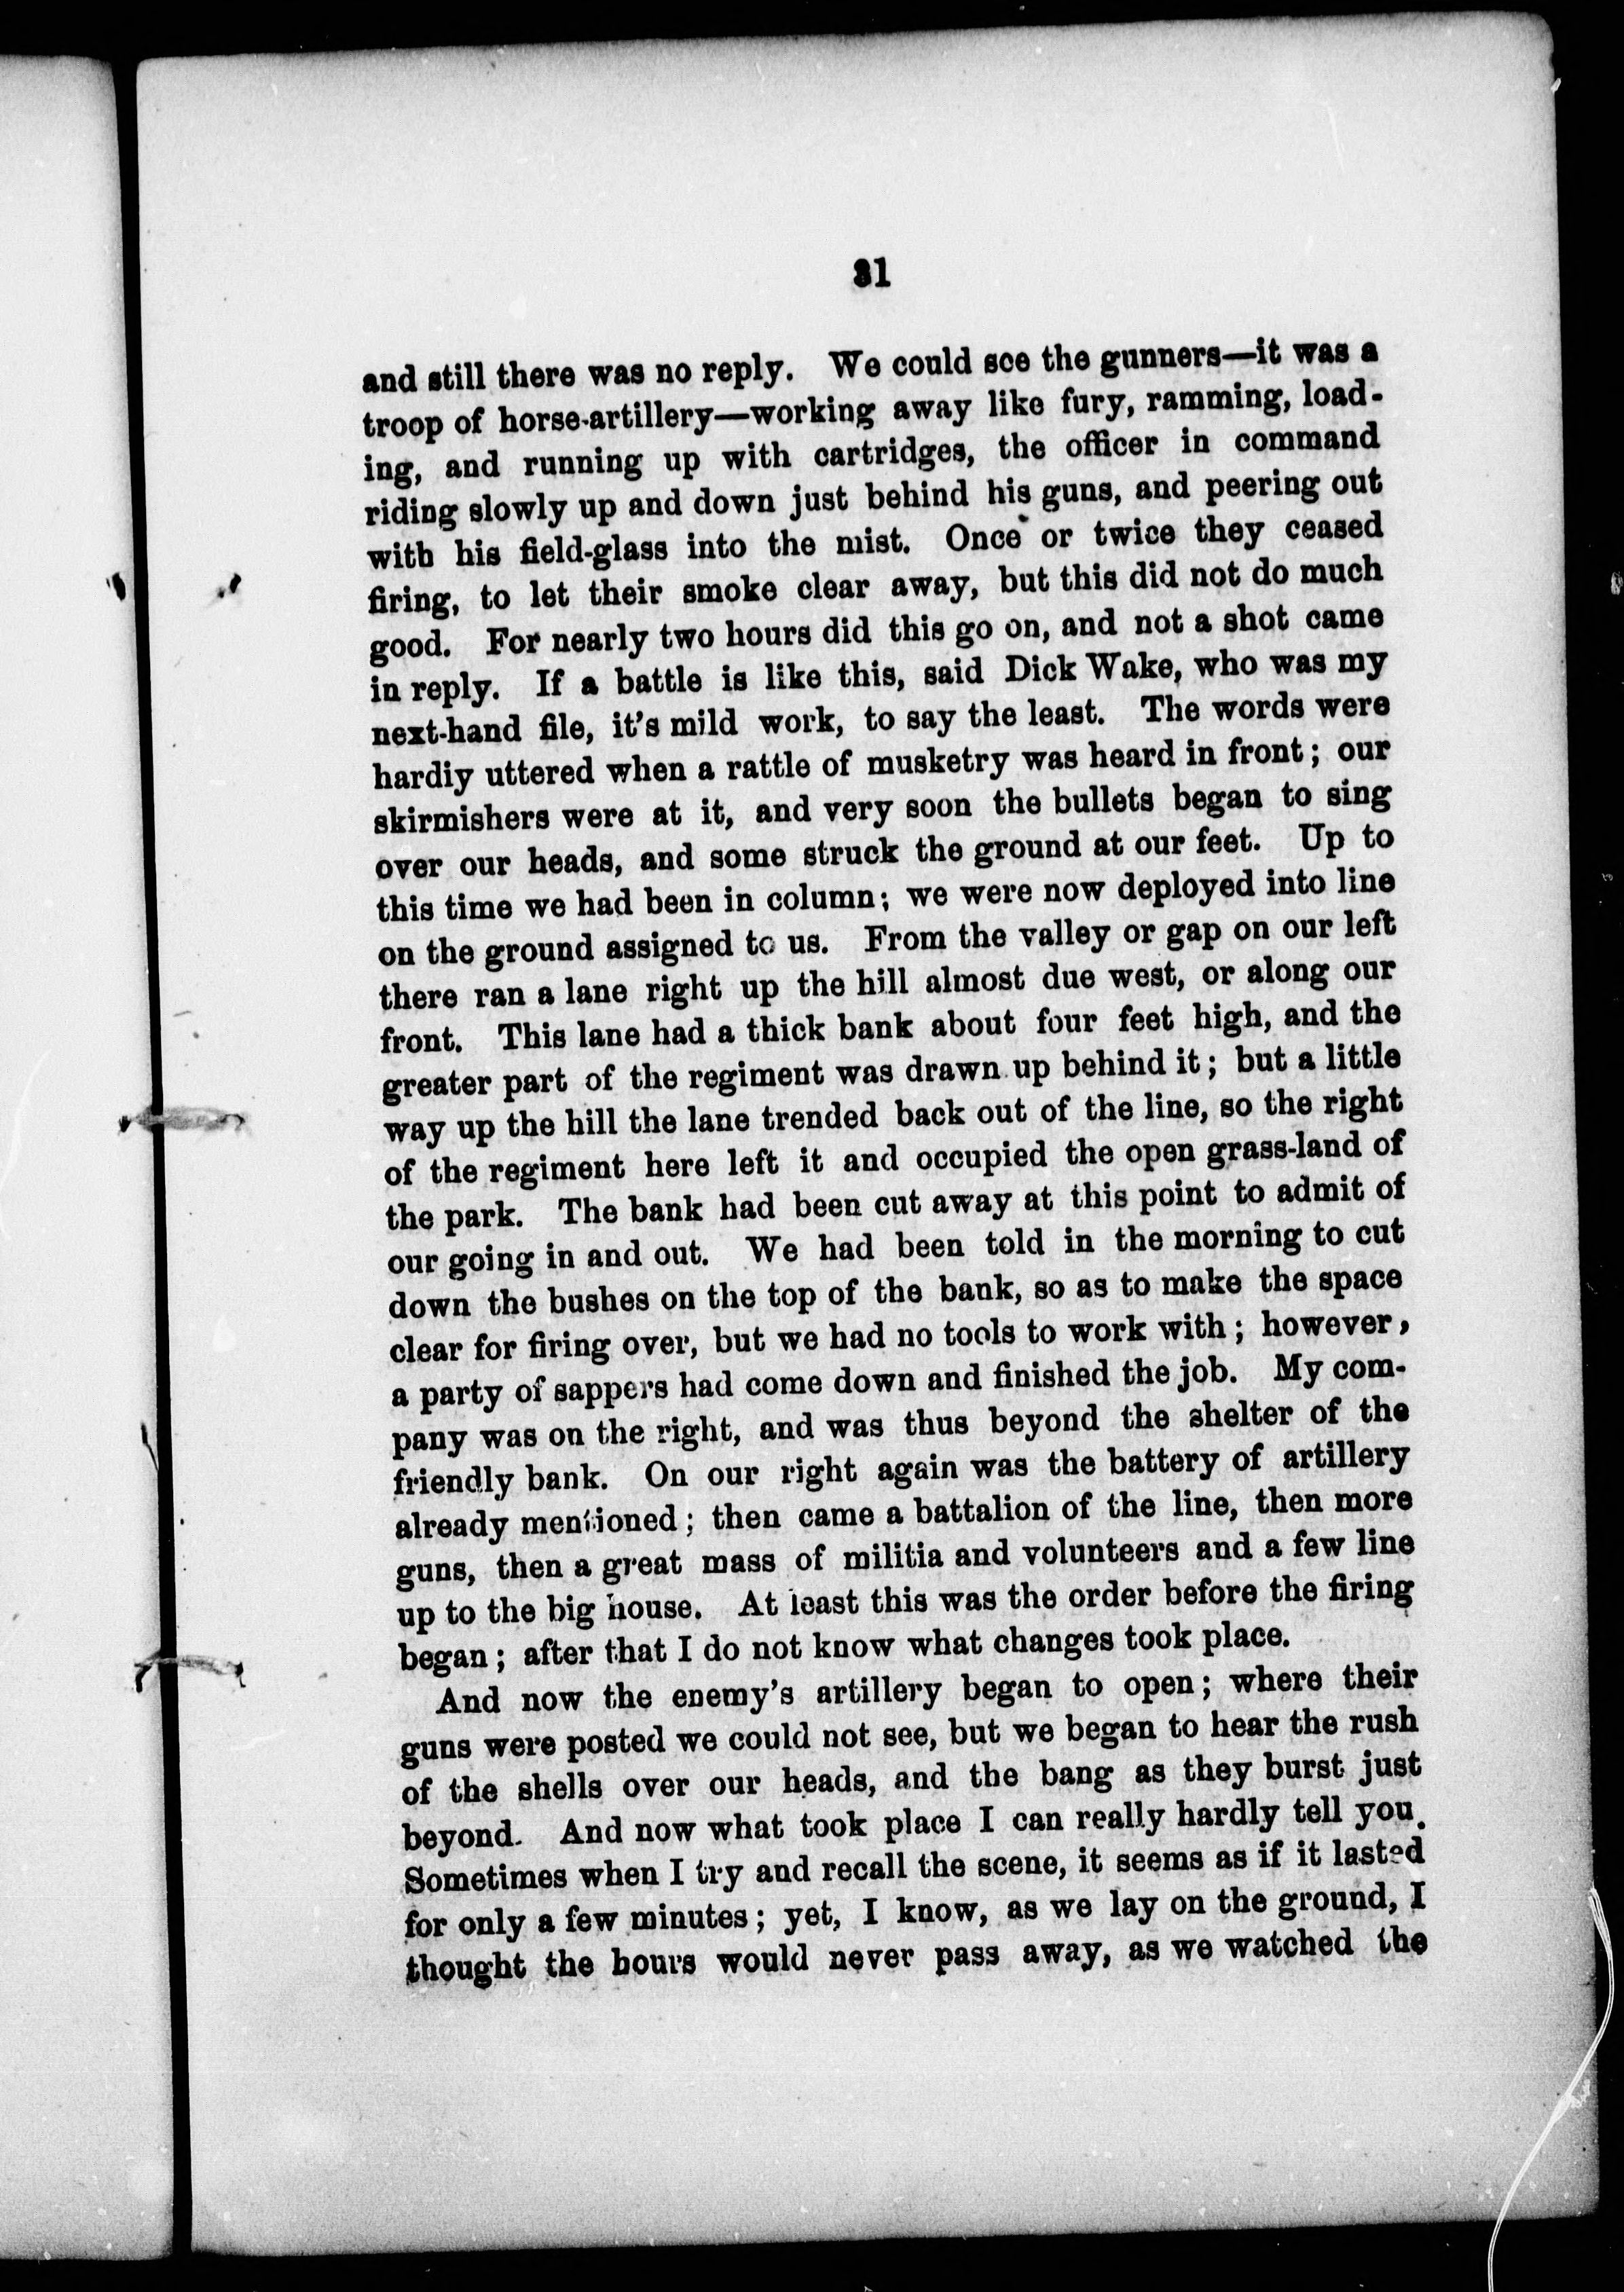 31
and still there was no reply. We could see the gunners—it was a
troop of horse-artillery—working away like fury, ramming, load-
ing, and running up with cartridges, the officer in command
riding slowly up and down just behind his guns, and peering out
with his field-glass into the mist. Once or twice they ceased
firing, to let their smoke clear away, but this did not do much
good. For nearly two hours did this go on, and not a shot came
in reply. If a battle is like this, said Dick Wake, who was my
next-hand file, it's mild work, to say the least. The words were
hardiy uttered when a rattle of musketry was heard in front; our
skirmishers were at it, and very soon the bullets began to sing
over our heads, and some struck the ground at our feet. Up to
this time we had been in column; we were now deployed into line
on the ground assigned to us. From the valley or gap on our left
there ran a lane right up the hill almost due west, or along our
front. This lane had a thick bank about four feet high, and the
greater part of the regiment was drawn up behind it; but a little
way up the hill the lane trended back out of the line, so the right
of the regiment here left it and occupied the open grass-land of
the park. The bank had been cut away at this point to admit of
our going in and out. We had been told in the morning to cut
down the bushes on the top of the bank, so as to make the space
clear for firing over, but we had no tools to work with; however,
a party of sappers had come down and finished the job. My com-
pany was on the right, and was thus beyond the shelter of the
friendly bank. On our right again was the battery of artillery
already mentioned; then came a battalion of the line, then more
guns, then a great mass of militia and volunteers and a few line
up to the big house. At least this was the order before the firing
began; after that I do not know what changes took place.
And now the enemy's artillery began to open; where their
guns were posted we could not see, but we began to hear the rush
of the shells over our heads, and the bang as they burst just
beyond. And now what took place I can really hardly tell you.
Sometimes when I try and recall the scene, it seems as if it lasted
for only a few minutes; yet, I know, as we lay on the ground, I
thought the hours would never pass away, as we watched the